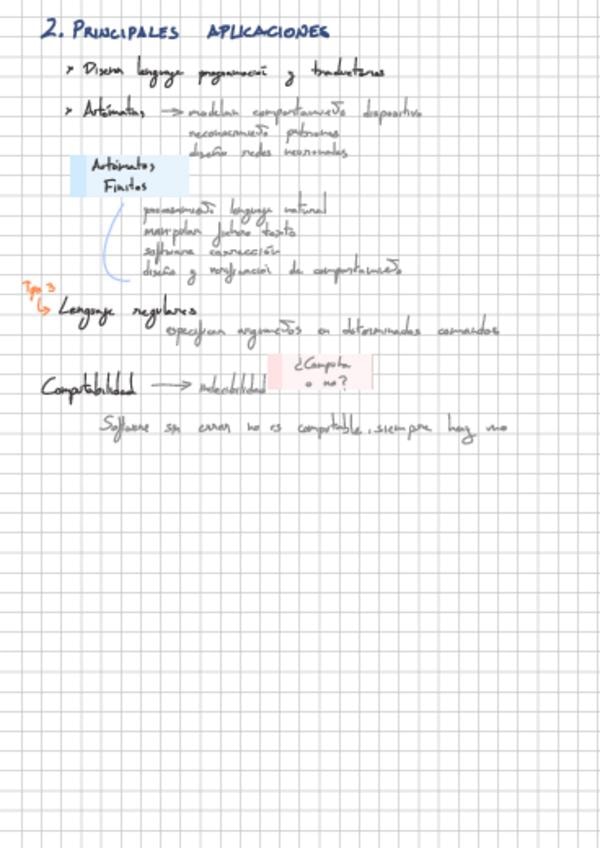 2. PRINCIPALES APLICACIONES
> Diseñar lenguaje programación y traductores
> Autómatas → modelan comportamiento dispositivo
reconocimiento patrones
diseño redes neuronales
Autómatas
Finitos
procesamiento lenguaje natural
manipular fichero texto
software corrección
diseño y verificación de comportamiento
Tipo 3
↳ Lenguaje regulares
especifican argumentos en determinados comandos
Computabilidad → indecibilidad
¿Computa
o no?
Software sin error no es computable, siempre hay uno